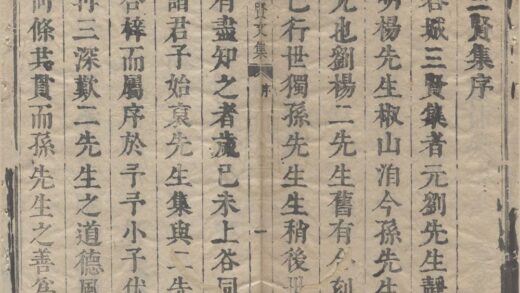 三賢集序
容城三賢集者元劉先生靜
明楊先生椒山洎今孫先生
元也劉楊二先生舊有刻
已行世獨孫先生生稍後世
賢文集 序 一
有盡知之者歲己未上谷同
諸君子始裒先生集與二先
合梓而屬序於予予小子伏
再三深歎二先生之道德風
同條共貫而孫先生之善爲